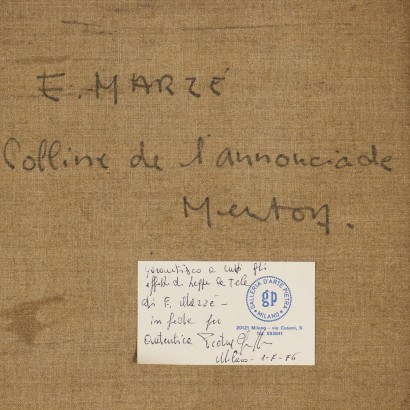 E. MARZÉ
Colline de l'annonciade
Menton.
garantisco a tutti gli
effetti di legge la Tela
di E. Marzé -
in fede per
autentica
Milano - 1-7-76
GALLERIA D'ARTE PIETRA
gp
MILANO
20121 Milano - via
Tel.